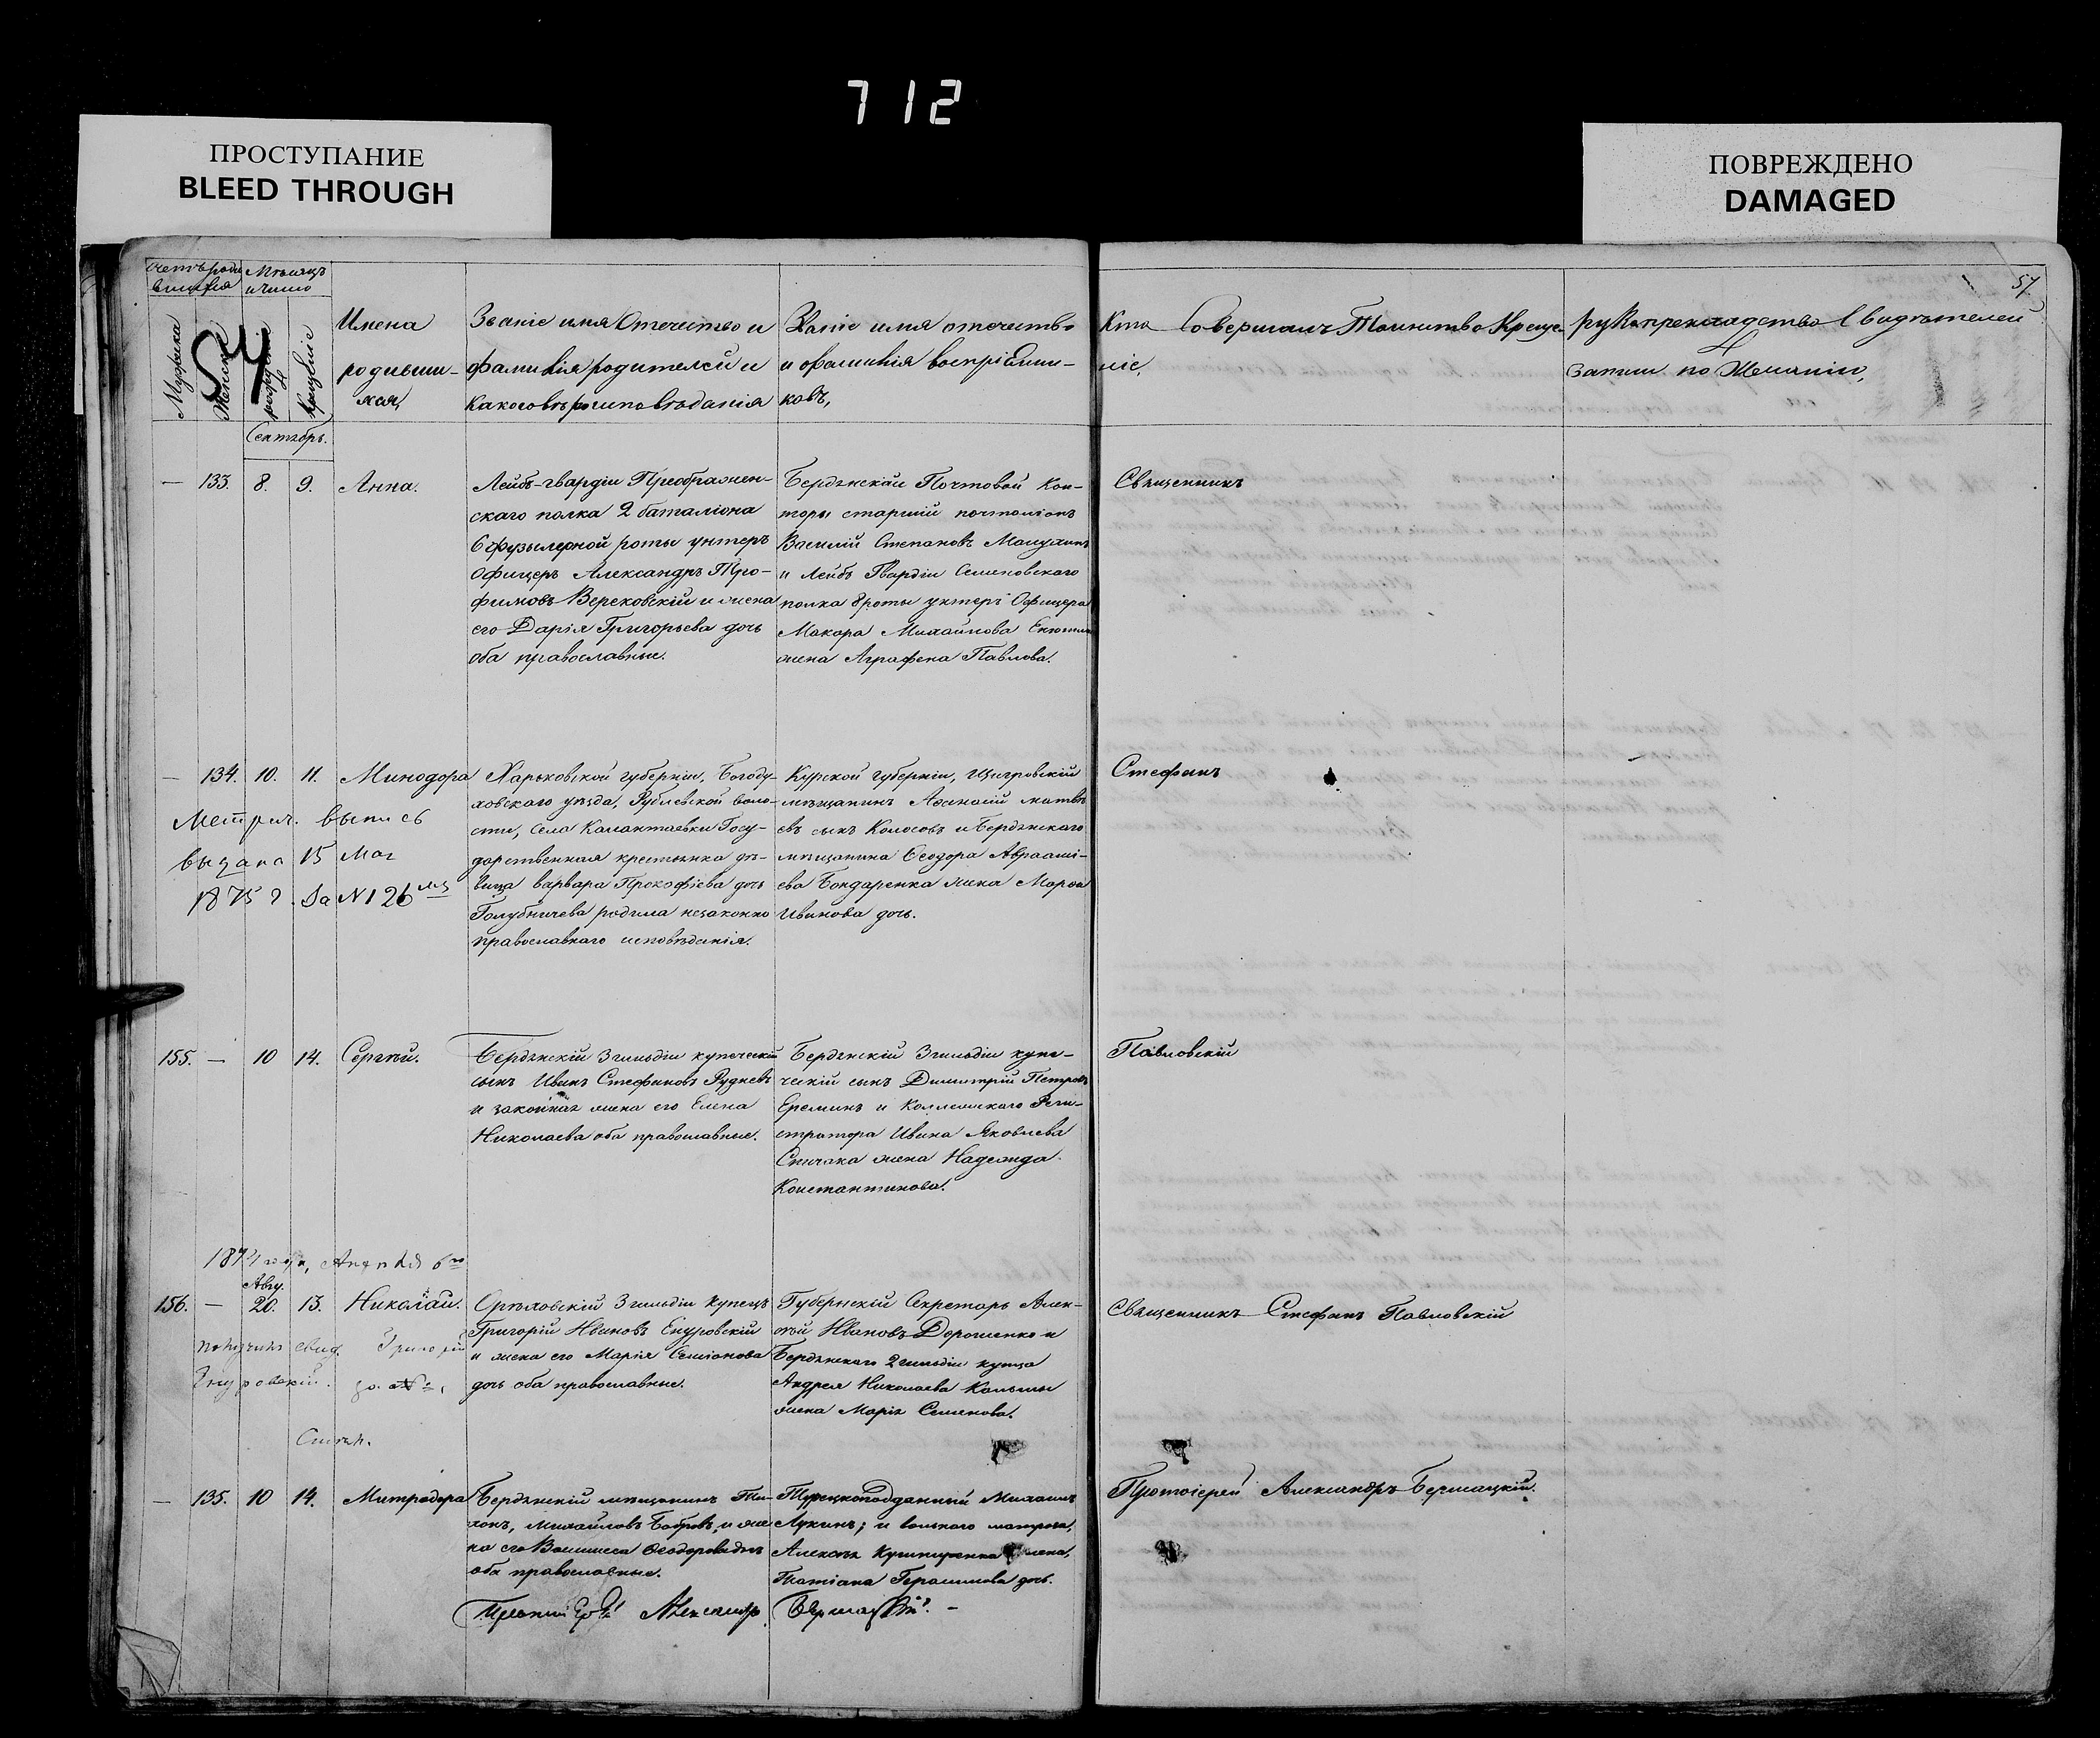 712
ПРОСТУПАНИЕ
BLEED THROUGH
ПОВРЕЖДЕНО
DAMAGED
57
Счетъ роди
вшихся
Мѣсяцъ
и число
Мужеска
Женска
рожденія
Крещеніе
Имена
родивши-
хся,
Званіе имя Отечество и
фамилія родителей и
какого вѣроисповѣданія
Званіе имя отечество
и фамилія воспріемни-
ковъ,
Кто Совершалъ Таинство Креще-
ніе,
рукоприкладство Свидѣтелей
записи по Желанію,
Сентябрь.
— 133. 8. 9. Анна.
Лейбъ-гвардіи Преображен-
скаго полка 2 баталіона
6 фузылерной роты унтеръ
Офицеръ Александръ Тро-
фимовъ Верековскій и жена
его Дарія Григорьева дочь
оба православные.
Бердянской Почтовой Кон-
торы старшій почталіонъ
Василій Степановъ
и Лейбъ Гвардіи Семеновскаго
полка 8 роты унтеръ Офицера
Макара Михайлова
жена Аграфена Павлова.
Священникъ
— 134. 10. 11. Минодора
Харьковской губерніи, Богоду-
ховскаго уѣзда, Рублевской воло-
сти, села Калантаевки Госу-
дарственная крестьянка дѣ-
вица Варвара Прокофіева дочь
Голубничева родила незаконно
православнаго исповѣданія.
Курской губерніи, Щигровскій
мѣщанинъ Афанасій матвѣ
евъ сынъ Колосовъ и Бердянскаго
мѣщанина Ѳеодора Авраамі-
ева Бондаренка жена Марѳа
Иванова дочь.
Стефанъ
Метрич. выпись
выдана 15 Мая
1875 г. За №126
155. — 10 14. Сергѣй.
Бердянскій 3 гильдіи купеческій
сынъ Иванъ Стефановъ Рудневъ
и законная жена его Елена
Николаева оба православные.
Бердянскій 3 гильдіи купе-
ческій сынъ Димитрій Петровъ
Ереминъ и Коллежскаго Реги-
стратора Ивана Яковлева
Спичака жена Надежда
Константинова.
Павловскій
Авгу.
156. — 20. 13. Николай.
Орѣховскій 3 гильдіи купецъ
Григорій Ивановъ Енуровскій
и жена его Марія Семіонова
дочь оба православные.
Губернскій Секретарь Алек-
сѣй Ивановъ Дорошенко и
Бердянскаго 2 гильдіи купца
Андрея Николаева
жена Марія Семенова.
Священникъ Стефанъ Павловскій
получилъ свид. Григорій
— 135. 10 14. Митродора
Бердянскій мѣщанинъ Ти-
хонъ, Михайловъ Бобровъ, и же
на его Васи­лиса Ѳеодорова дочь
оба православные.
Турецкоподданный Михаилъ
Лукинъ; и вольнаго матроса,
Алексѣя жена,
Татіана Герасимова дочь.
Протоіерей Александръ Бершацкій.
Протоіерей Александръ Бершацкій. —